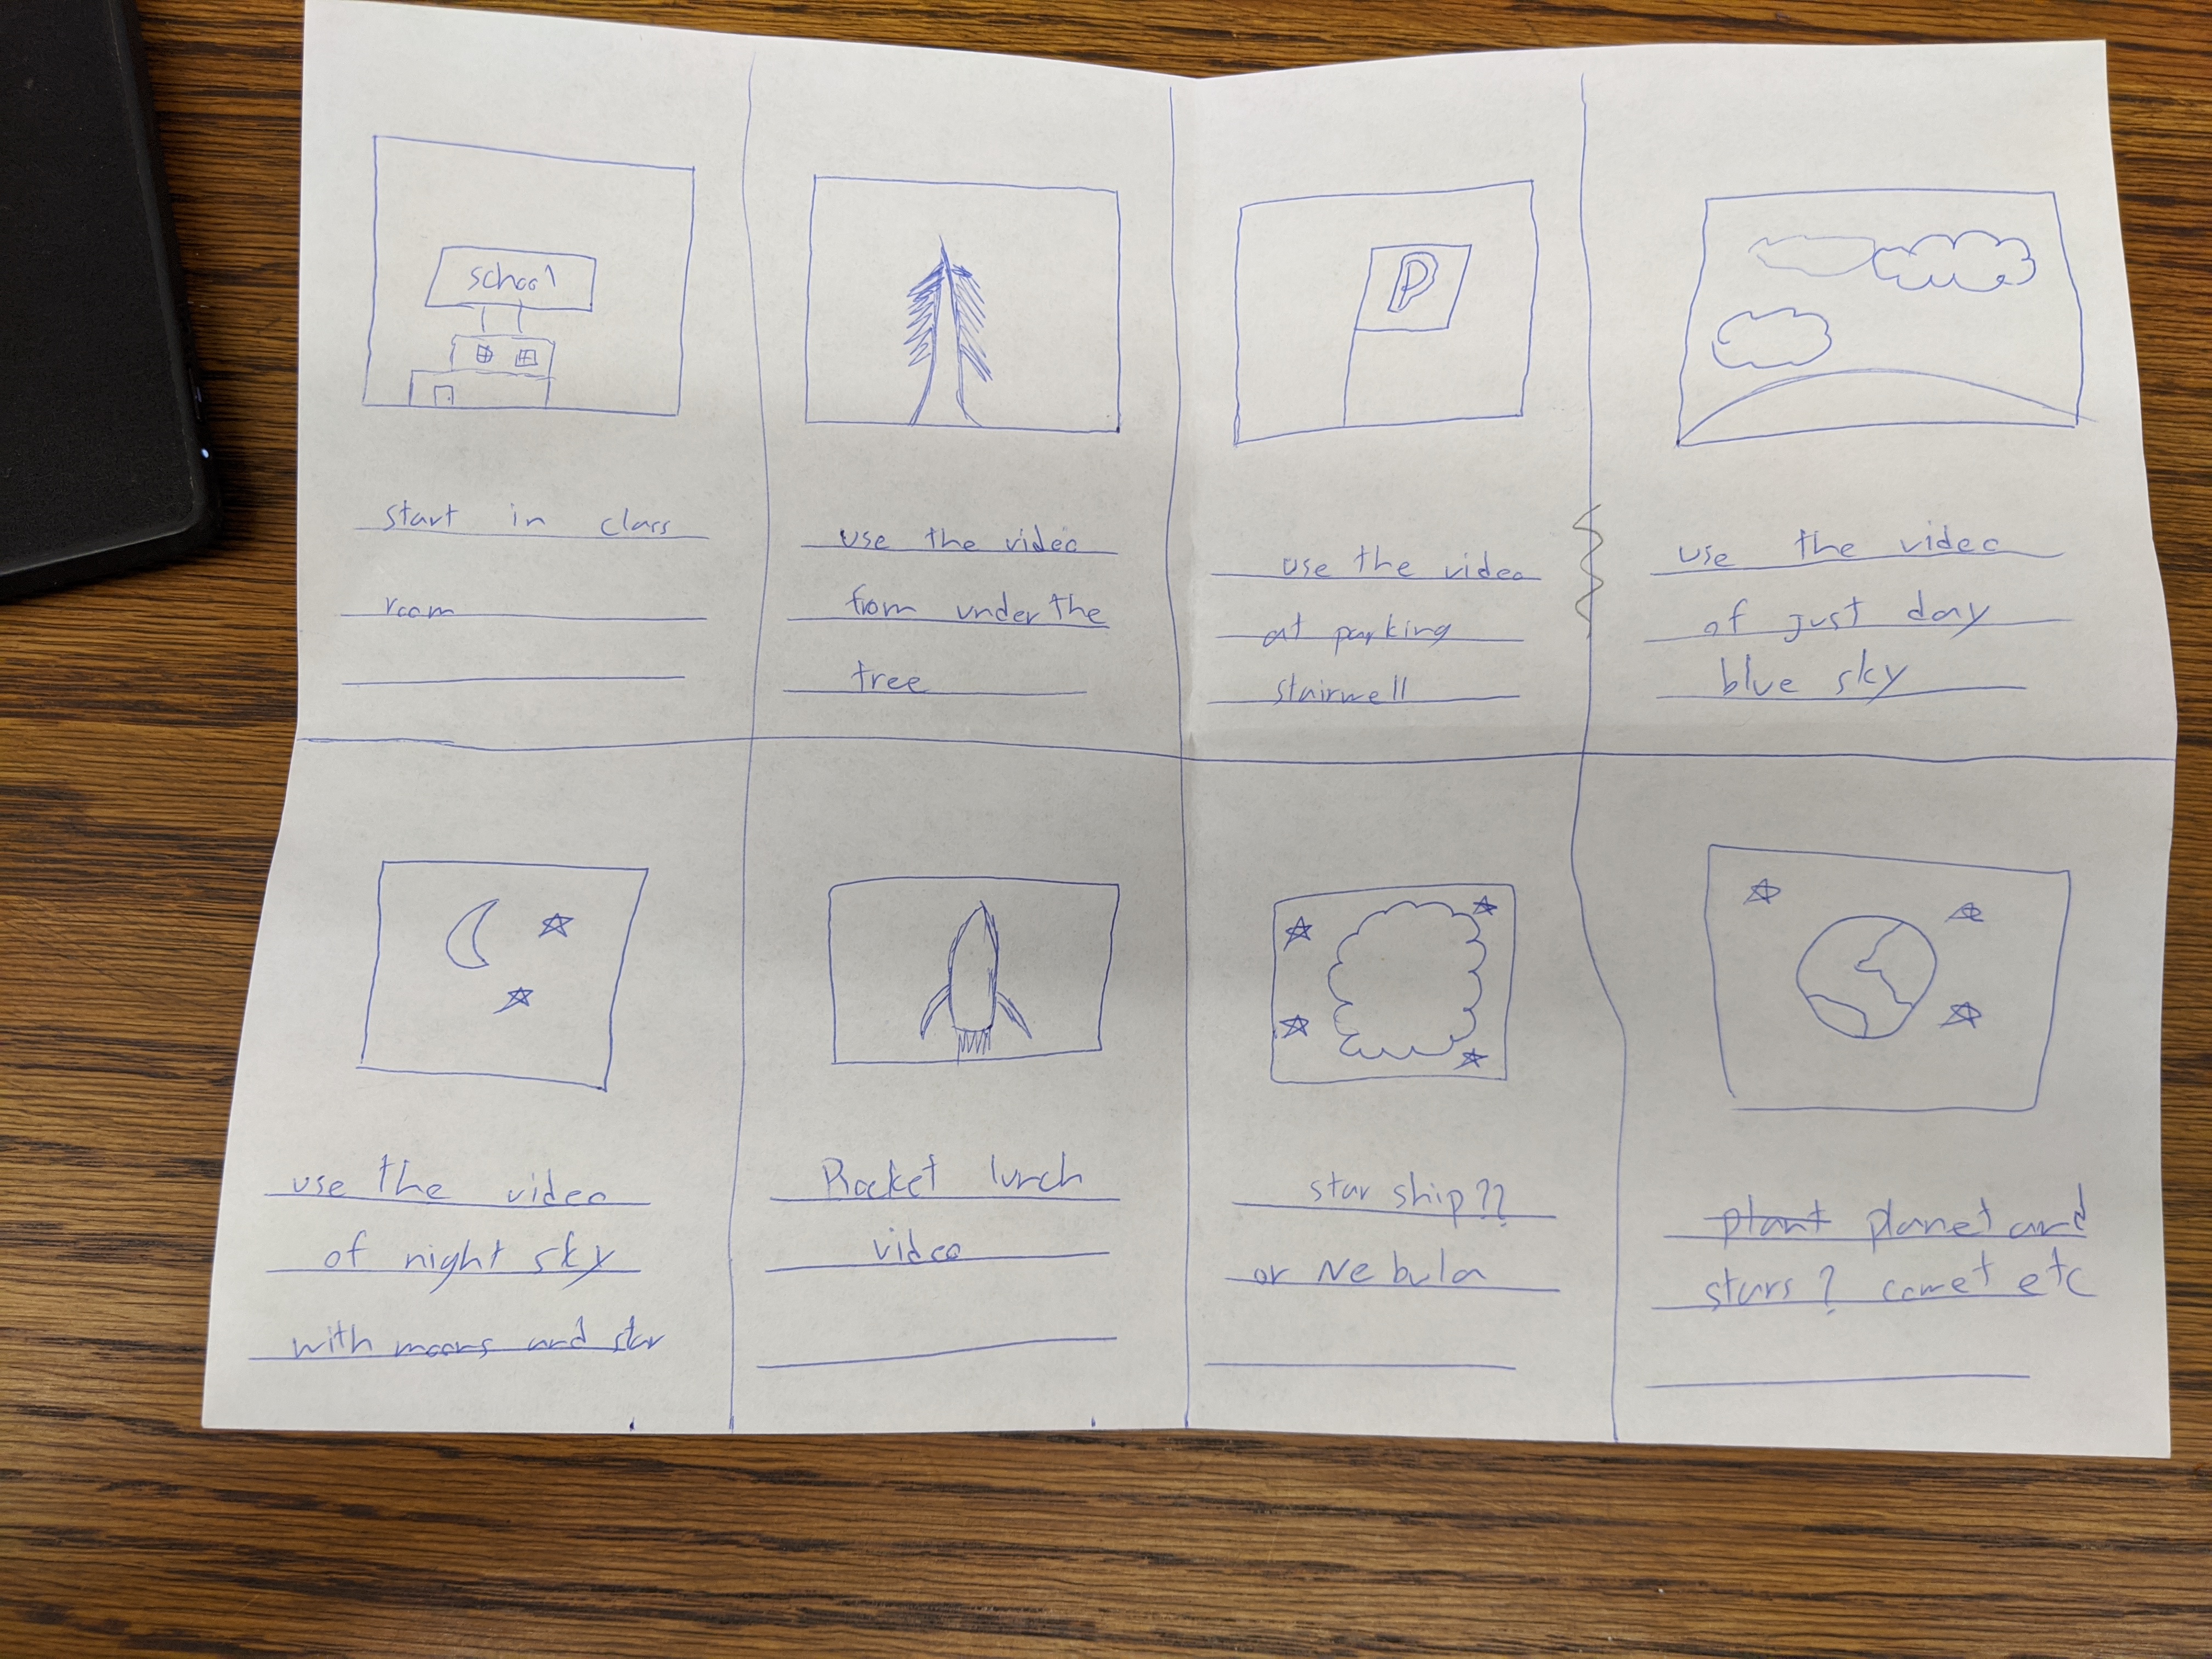 school
start in class
room
use the video
from under the
tree
P
use the video
at parking
stairwell
use the video
of just day
blue sky
use the video
of night sky
with moons and star
Rocket lunch
video
star ship??
or Nebula
plant planet and
stars? comet etc